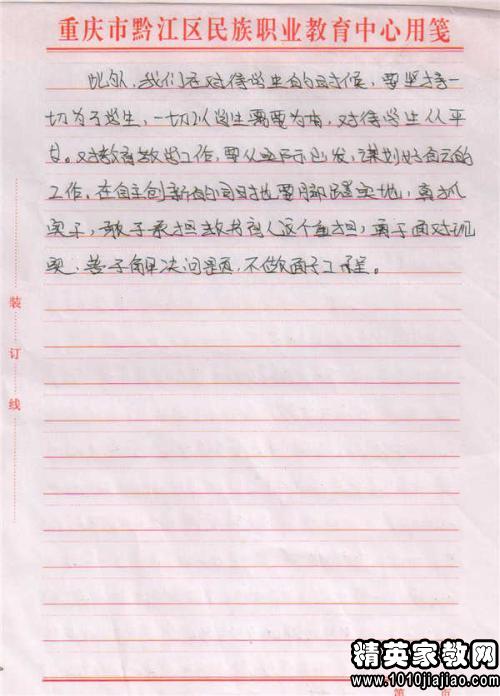 重庆市黔江区民族职业教育中心用笺
此外,我们在对待学生的时候,要坚持一
切为了学生,一切以学生需要为有,对待学生从平
等。对教育教学工作,要从实际出发,谋划好自己的
工作,在自主创新的同时也要脚踏实地,真抓
实干,敢于承担教书育人这个重担,勇于面对现
实,善于解决问题,不做面子工程。
装
订
线
第 页
精英家教网
www.1010jiajiao.com